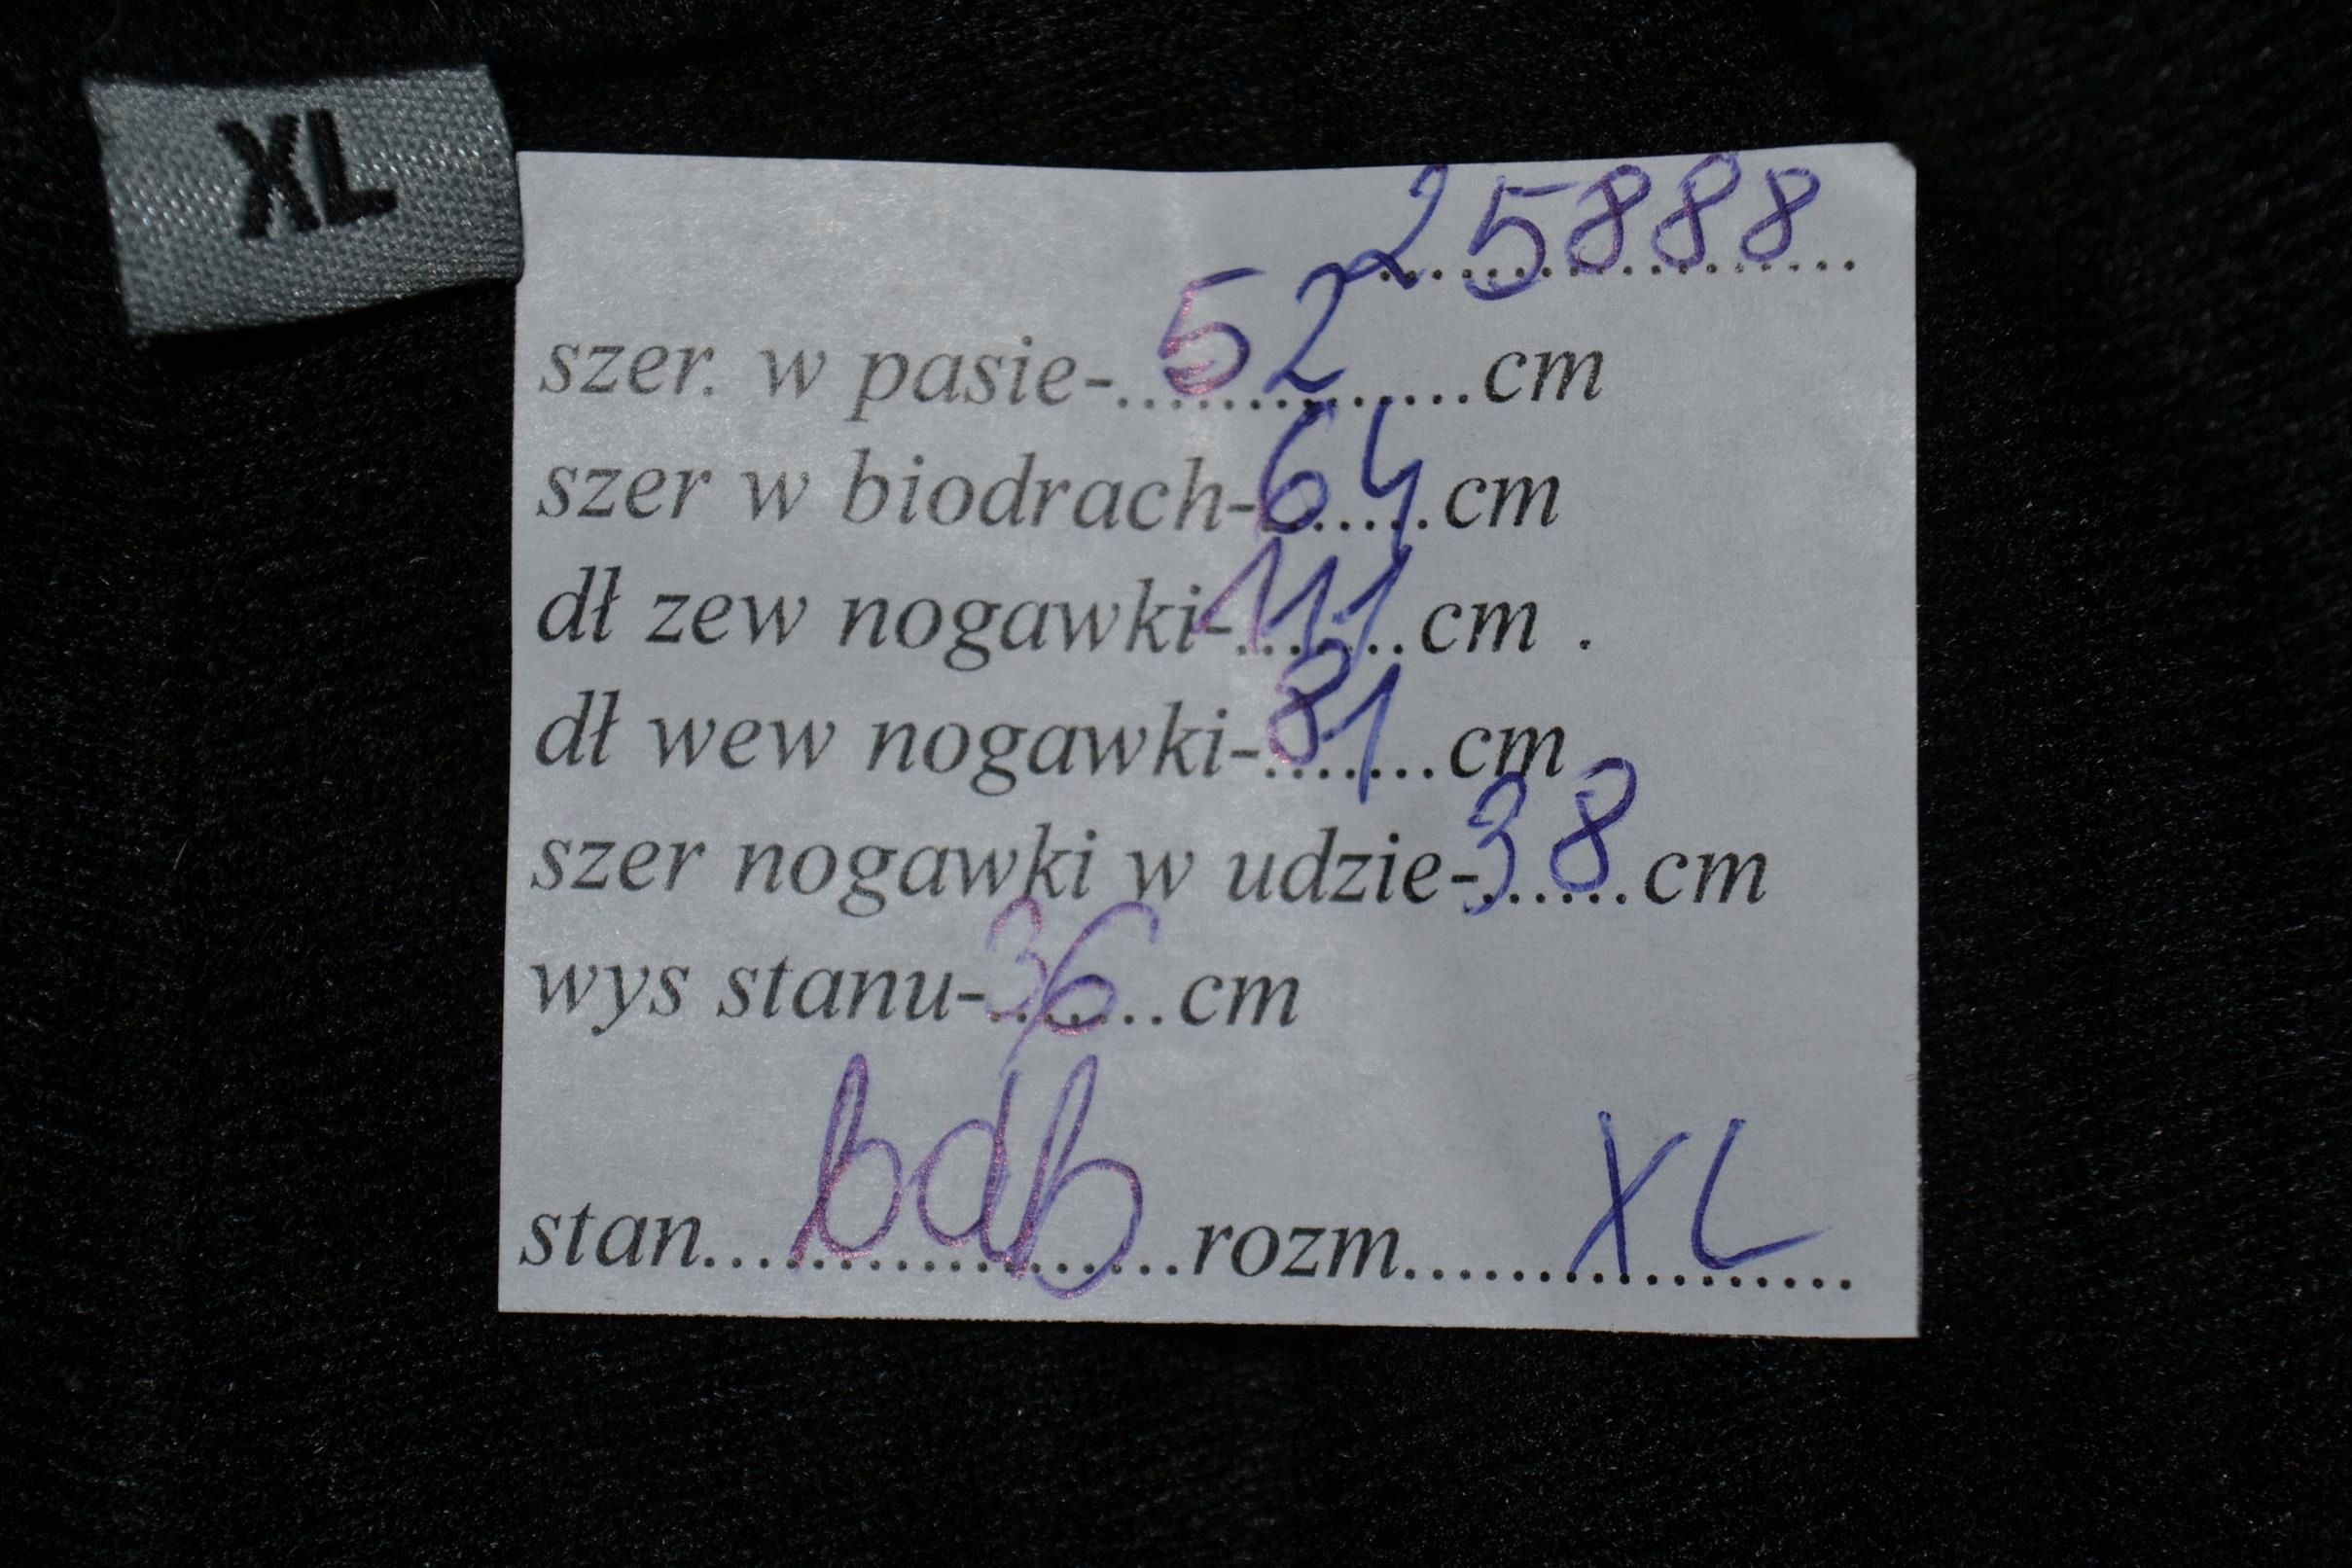 XL
25888
szer. w pasie-52cm
szer w biodrach-64cm
dł zew nogawki-111cm .
dł wew nogawki-81cm
szer nogawki w udzie-38cm
wys stanu-36cm
stan...bdb...rozm...XL...